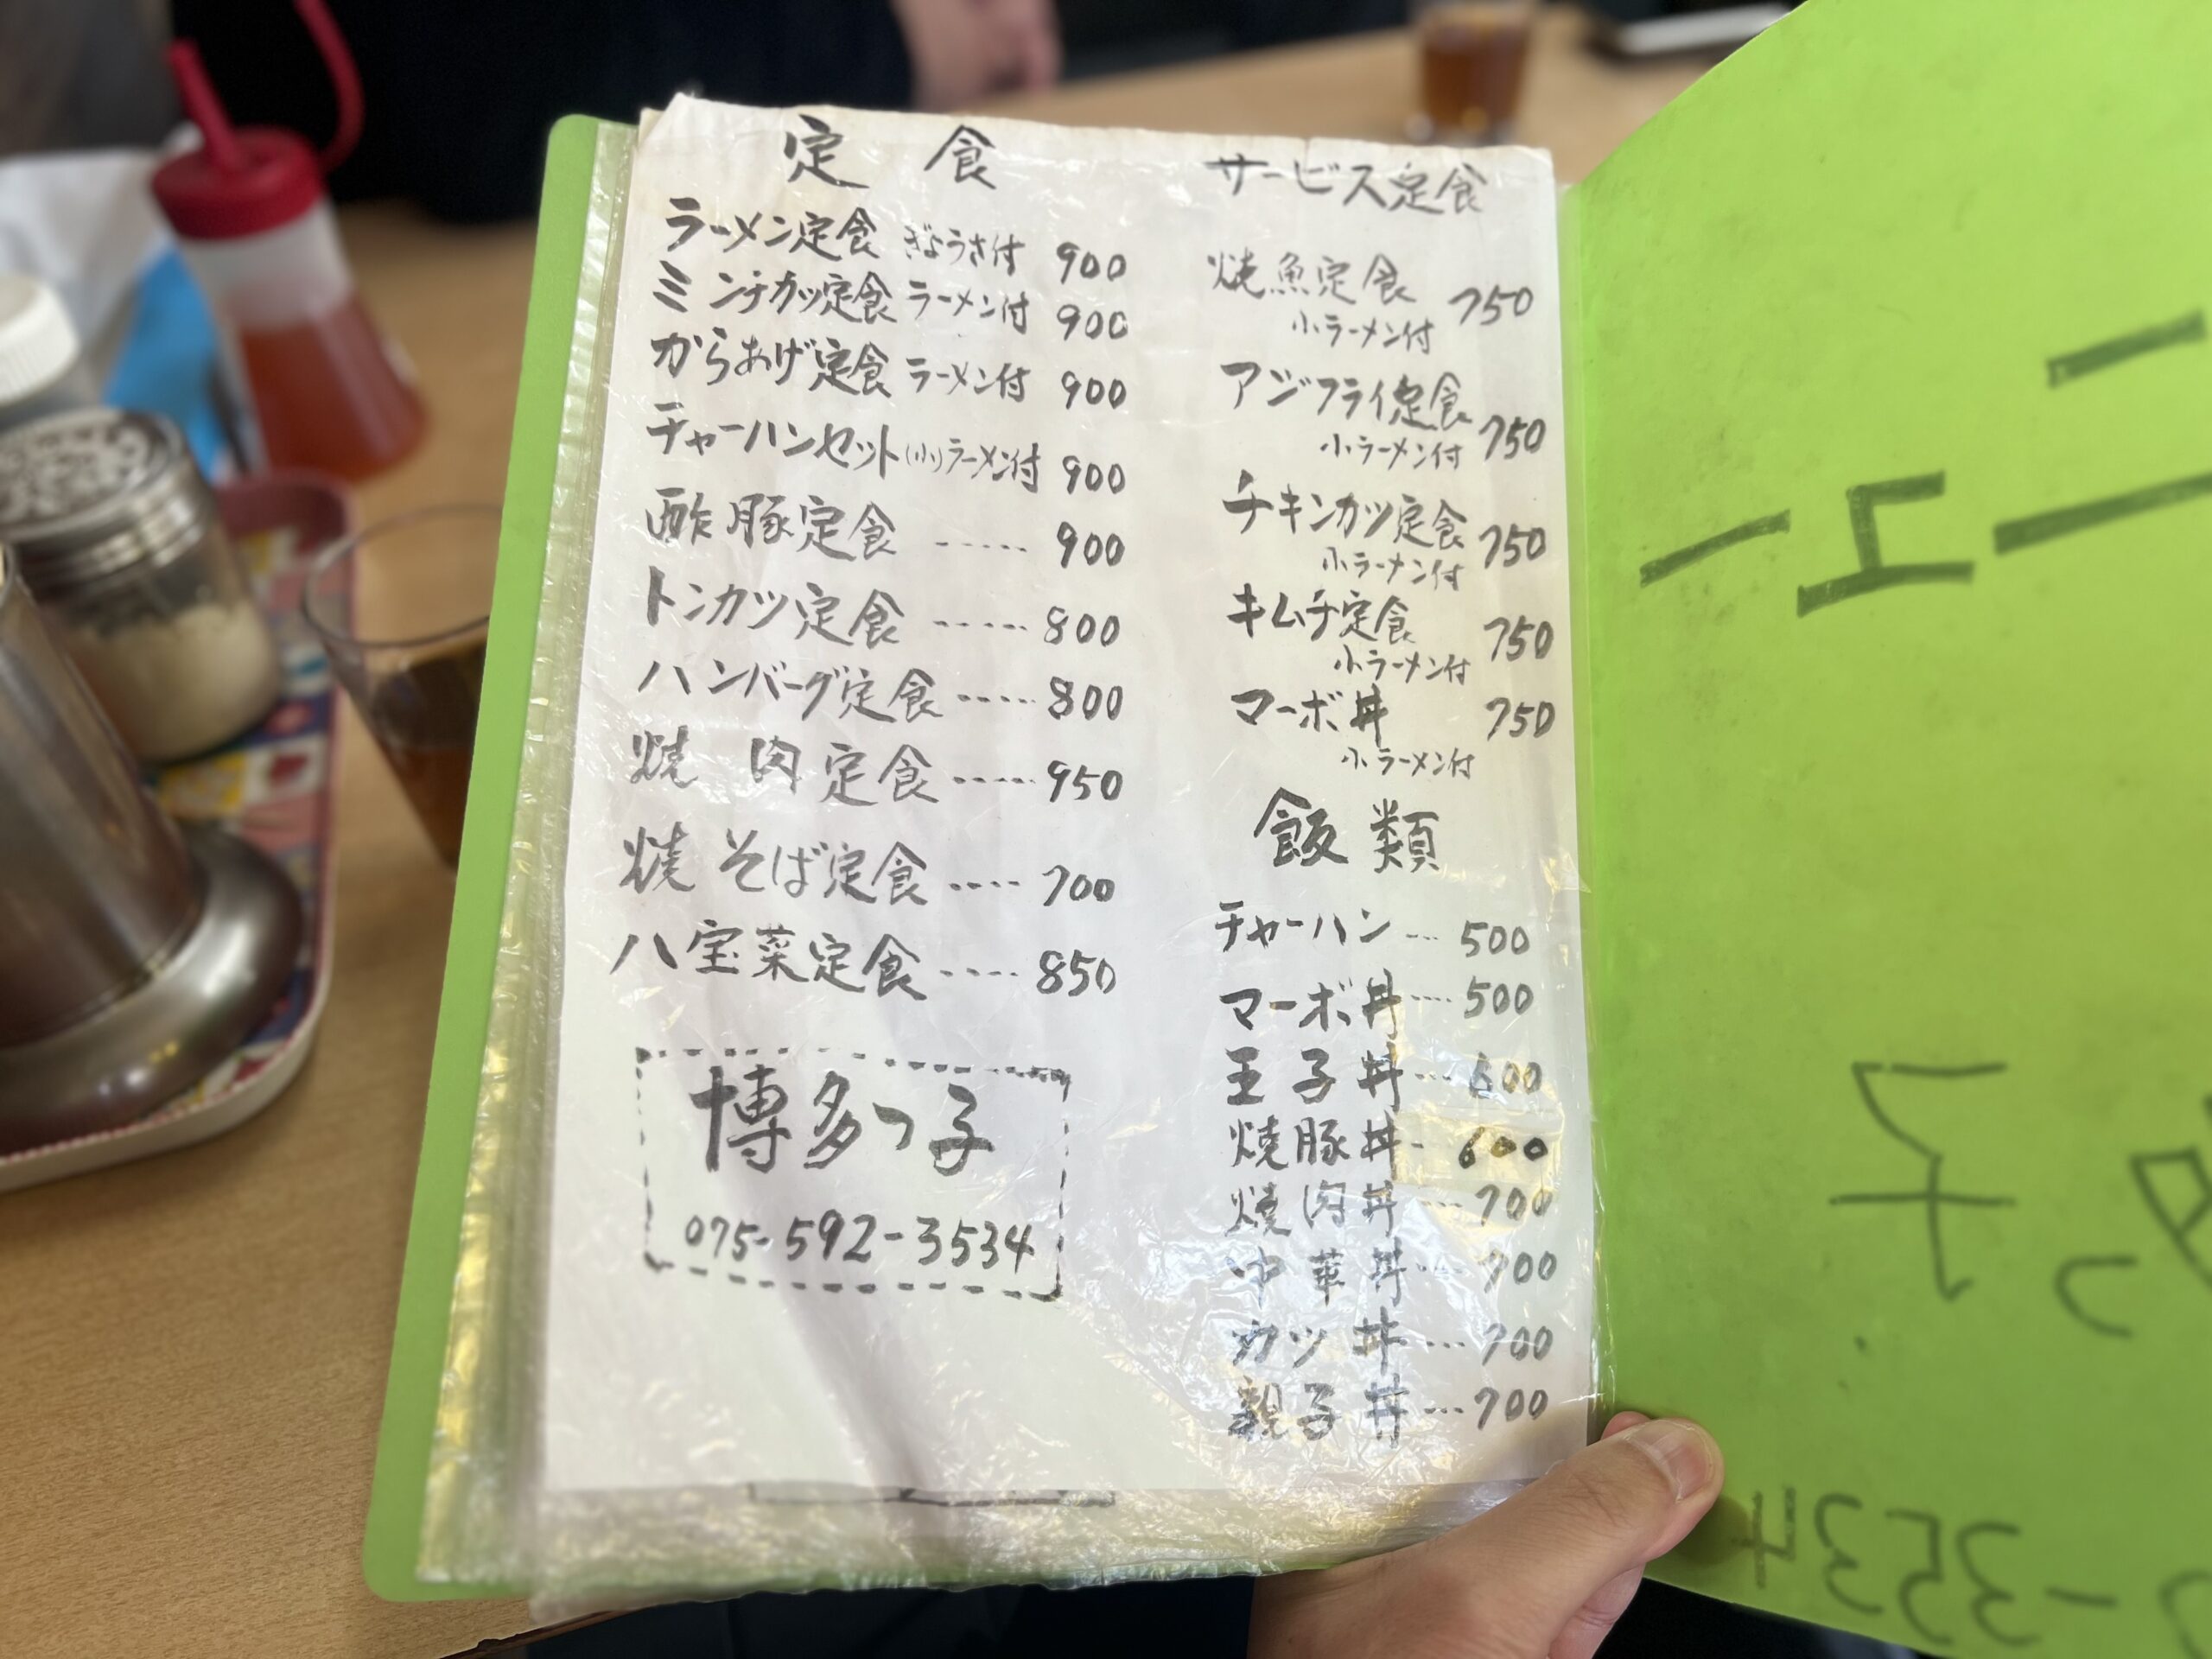 定食
ラーメン定食 ぎょうざ付 900
ミンチカツ定食 ラーメン付 900
からあげ定食 ラーメン付 900
チャーハンセット(小)ラーメン付 900
酢豚定食 ‥‥‥ 900
トンカツ定食 ‥‥‥ 800
ハンバーグ定食 ‥‥‥ 800
焼肉定食 ‥‥‥ 950
焼そば定食 ‥‥ 700
八宝菜定食 ‥‥ 850
博多っ子
075-592-3534
サービス定食
焼魚定食 750
小ラーメン付
アジフライ定食 750
小ラーメン付
チキンカツ定食 750
小ラーメン付
キムチ定食 750
小ラーメン付
マーボ丼 750
小ラーメン付
飯類
チャーハン … 500
マーボ丼 ‥‥ 500
玉子丼 … 600
焼豚丼 - 600
焼肉丼 … 700
中華丼 … 700
カツ丼 … 700
親子丼 … 700
メニュー